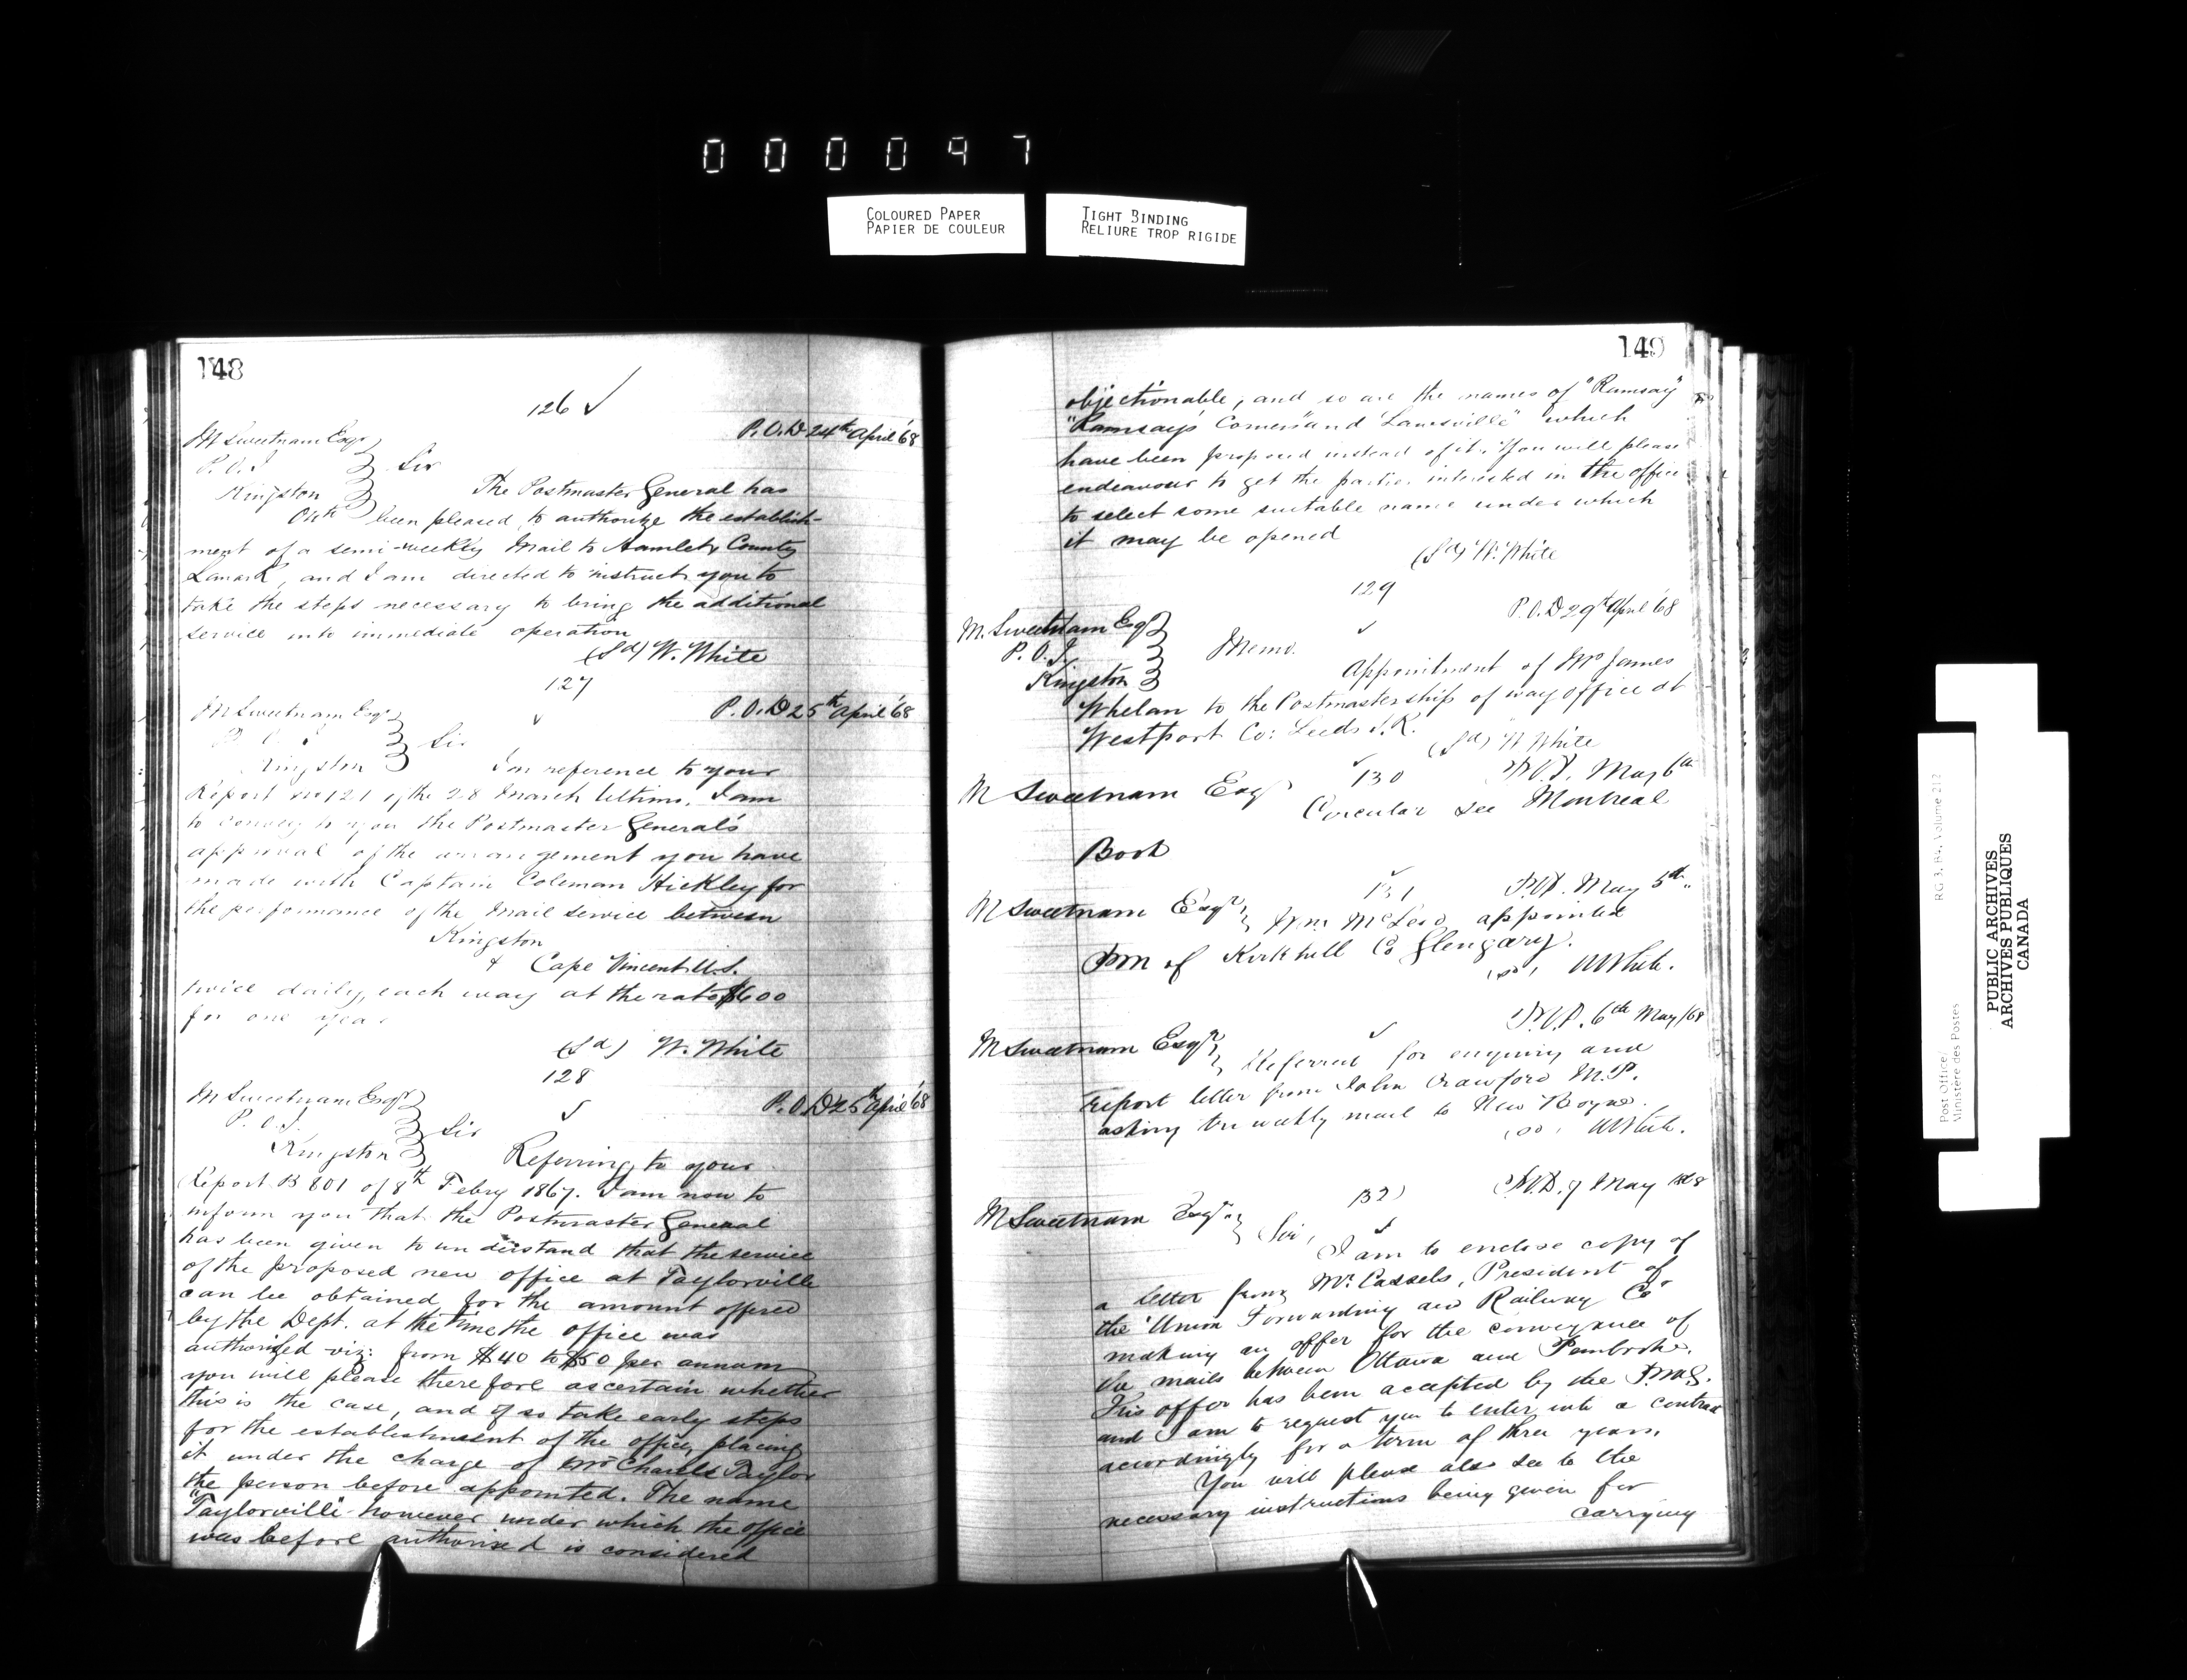 000097
COLOURED PAPER
PAPIER DE COULEUR
TIGHT BINDING
RELIURE TROP RIGIDE
148
126 ✓
P.O.D 24th April '68
M Sweetnam Esqr
P.O.I
Kingston
Sir
The Postmaster General has
been pleased to authorize the establish-
ment of a semi-weekly Mail to County
Lanark, and I am directed to instruct you to
take the steps necessary to bring the additional
service into immediate operation
(Sd) W. White
127
P.O.D 25th April '68
M Sweetnam Esqr
P.O.I
Kingston
✓
Sir
In reference to your
Report No 121 of the 28 March Ultimo, I am
to convey to you the Postmaster General's
approval of the arrangement you have
made with Captain Coleman Hickley for
the performance of the Mail Service between
Kingston
& Cape Vincent U.S.
twice daily, each way at the rate $600
for one year
(Sd) W. White
128
P.O.D 25th April '68
M Sweetnam Esqr
P.O.I.
Kingston
✓
Sir
Referring to your
Report B 801 of 8th Febry 1867. I am now to
inform you that the Postmaster General
has been given to understand that the service
of the proposed new office at Taylorville
can be obtained for the amount offered
by the Dept. at the time the office was
authorized viz: from $40 to $50 per annum
you will please therefore ascertain whether
this is the case, and if so take early steps
for the establishment of the office, placing
it under the charge of Mr Charles Taylor
the person before appointed. The name
"Taylorville" however under which the office
was before authorised is considered
149
objectionable, and so are the names of "Ramsay"
"Ramsay's Corners" and which
have been proposed instead of it. You will please
endeavour to get the parties interested in the office
to select some suitable name under which
it may be opened
(Sd) W. White
129
P.O.D 29th April '68
M. Sweetnam Esqr
P.O.I.
Kingston
✓
Memo.
Appointment of Mr James
Whelan to the Postmastership of way office at
Westport Co: Leeds
(Sd) W White
130
P.O.D. May 6th
M Sweetnam Esqr
Circular see Montreal
Book
131
P.O.D. May 5th
M Sweetnam Esqr
Wm McLeod appointed
P.M of Kirkhill Co Glengary.
(sd) W White.
P.O.D. 6th May /68
M Sweetnam Esqr
✓
Referred for enquiry and
report letter from John Crawford M.P.
asking tri weekly mail to New Boyne.
(sd) W White.
132)
P.O.D. 9 May 1868
M Sweetnam Esqr
Sir,
I am to enclose copy of
a letter from Mr. Cassels, President of
the Union Forwarding and Railway Co
making an offer for the conveyance of
the mails between Ottawa and Pembroke.
This offer has been accepted by the P.M.G.
and I am to request you to enter into a contract
accordingly for a term of three years.
You will please also see to the
necessary instructions being given for
carrying
Post Office/
Ministère des Postes
RG 3, B4, Volume 212
PUBLIC ARCHIVES
ARCHIVES PUBLIQUES
CANADA